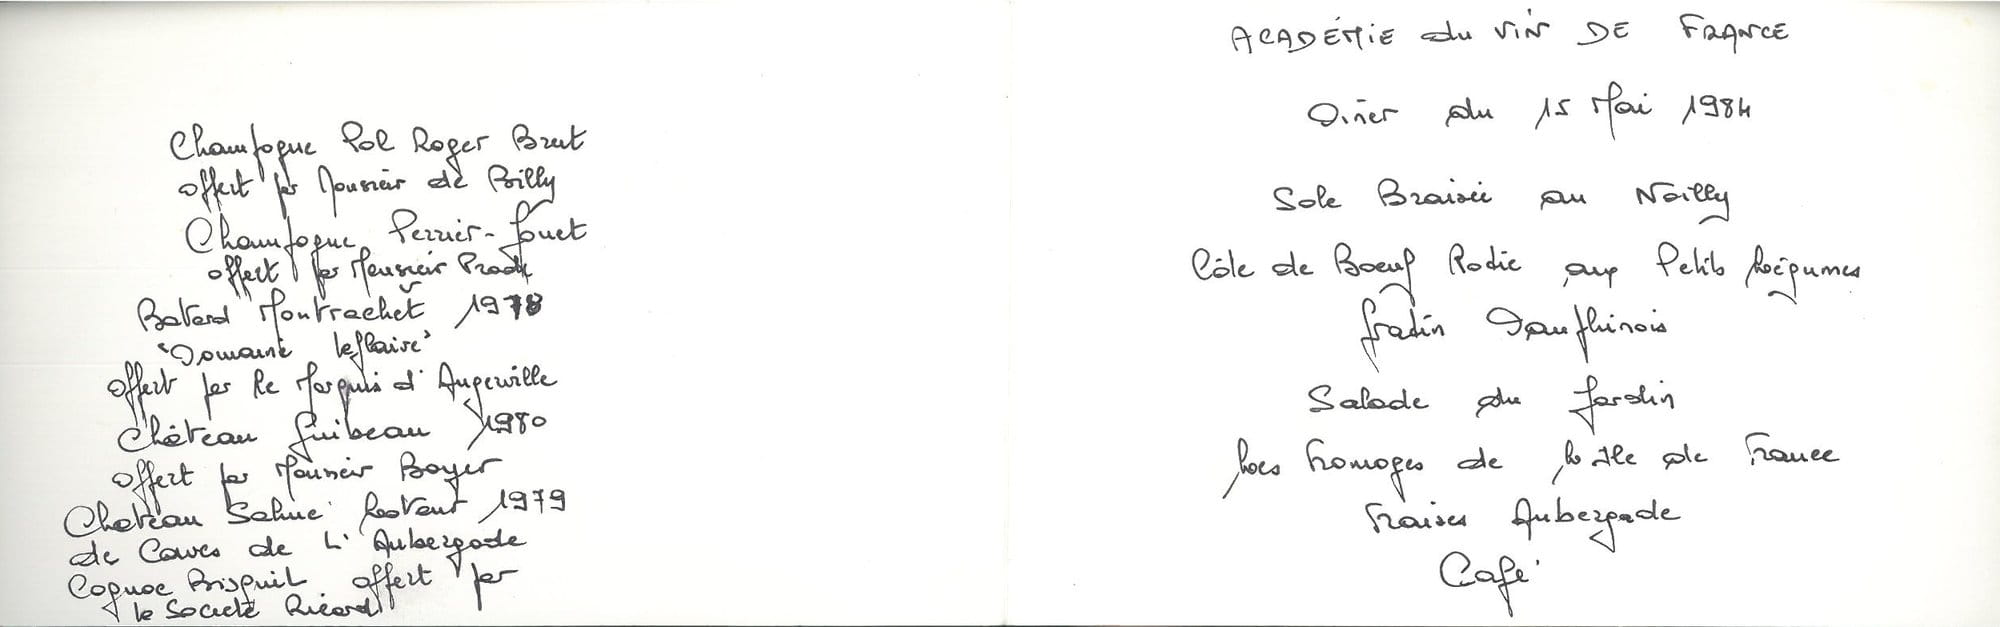 Champagne Pol Roger Brut
offert par Monsieur de Billy
Champagne Perrier-Jouet
offert par Monsieur Prade
Batard Montrachet 1978
"Domaine leflaive"
offert par le Marquis d'Angerville
Château Guibeau 1980
offert par Monsieur Boyer
Chateau Postant 1979
de Caves de L'Aubergade
Cognac Bisquit offert par
la Société Ricard
ACADÉMIE du VIN DE FRANCE
Diner du 15 Mai 1984
Sole Braisée au Noilly
Côte de Boeuf Rotie aux Petits Légumes
Gratin Dauphinois
Salade du Jardin
Les Fromages de L'Ile de France
Fraises Aubergade
Café